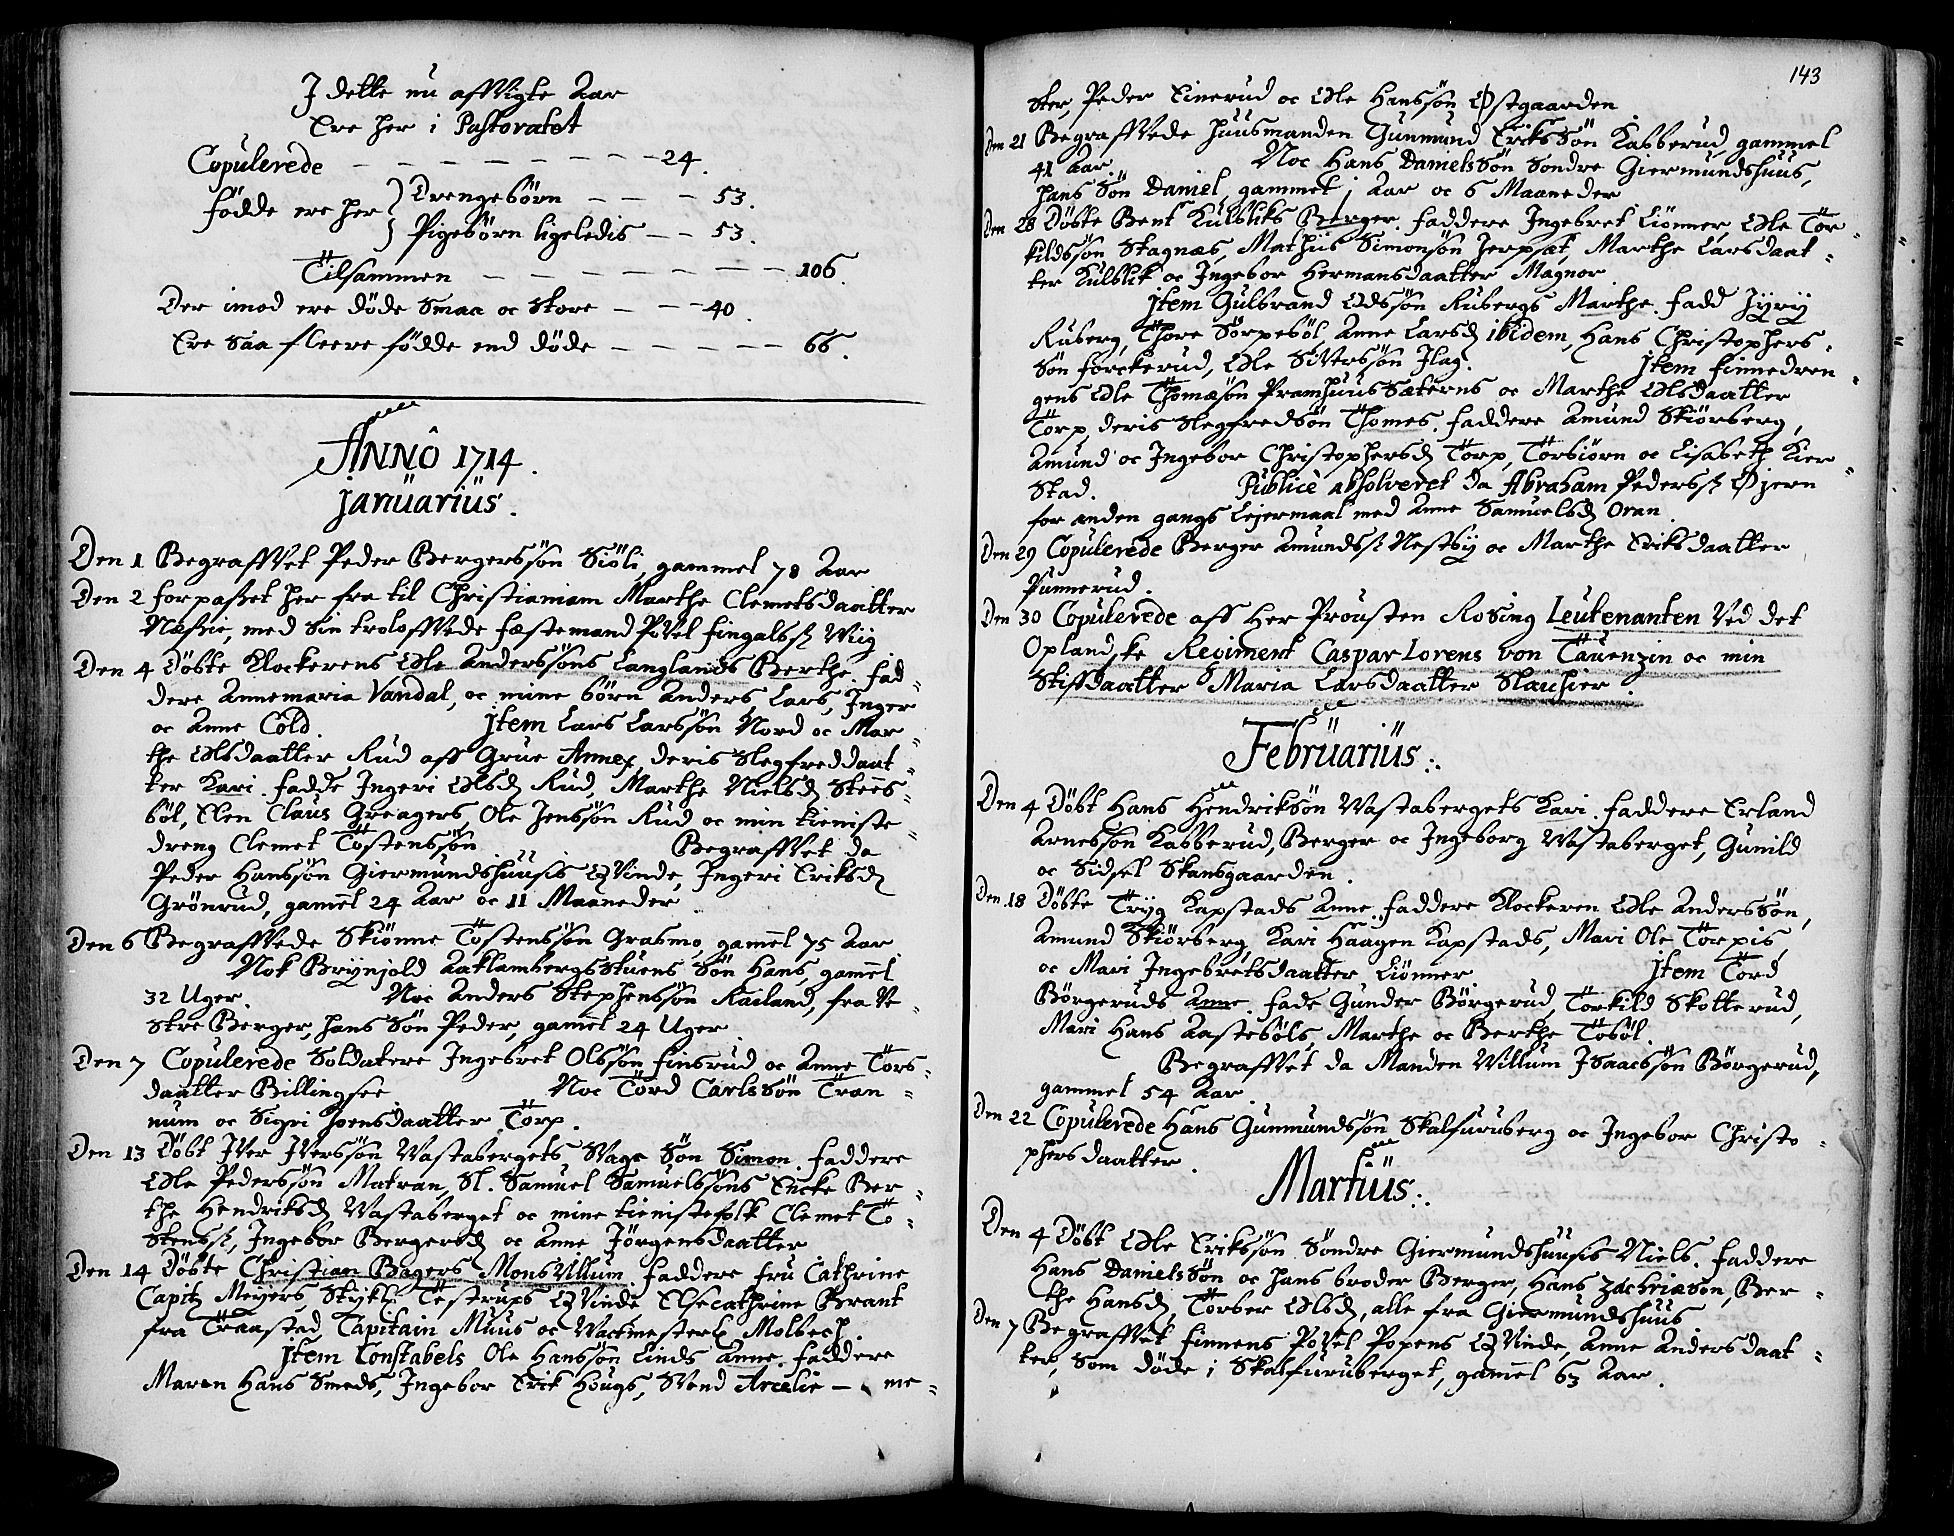 I dette nu affVigte Aar
Ere her i Pastoratet
Copulerede — — — — — — — — 24.
födde ere her } Drengebörn — — — 53.
} Pigebörn ligeledis — — 53.
Tilsammen — — — — — — — — 106.
Der imod ere døde Smaa oc Store — — — 40.
Ere saa fleere födde end døde — — — — — 66.
ANNO 1714.
januarius.
Den 1 BegraffVet Peder Bergerssön Siöli, gammel 78 Aar
Den 2 forpasset her fra til Christianiam Marthe Clemetsdaatter
Næssie, med Sin troloffVede fæstemand Povel fingalss: Wiig
Den 4 Döbte Klockerens Edle Anderssöns Langlands Berthe. fad=
dere Annemaria Vandal, oc mine börn Anders, Lars, Inger
oc Anne Cold. jtem Lars Larssön Nord oc Mar=
the Edlsdaatter Rud aff Grue Annex, deris Slegfreddaat=
ter Kari. fadde Ingeri Edlsd Rud, Marthe Nielsd Stees=
böl, Elen Claus Greagers, Ole Jenssön Rud oc min tieniste=
dreng Clemet Töstenssön BegraffVet da
Peder Hanssön Giermundshuusis QVinde, Ingeri Eriksd
Grönrud, gamel 24 Aar oc 11 Maaneder
Den 6 BegraffVede Skiönne Töstenssön Grasmo, gamel 75 Aar
Nok Brynjold Aaklambergsstuens Sön Hans, gamel
32 Uger. Noc Anders Stephenssön Kailand, fra V=
stre Berger, hans Sön Peder, gamel 24 Uger
Den 7 Copulerede Soldatere Ingebret Olssön finsrud oc Anne Tors=
daatter Billingsee Noc Tord Carlssön Tran=
num oc Sigri Joensdaatter Torp.
Den 13 Döbt IVer IVerssön Vastabergets SVage Sön Simon. faddere
Edle Pederssön Matran, Sl. Samuel Samuelssöns Encke Ber=
the Hendriksd Vastaberget oc mine tienistefolk Clemet To=
stenss:, Ingebor Bergersd oc Anne Jörgensdaatter
Den 14 Döbte Christian Bagers MonsVillum. faddere fru Cathrine
Capit: Meyers, Stykl: Testrups QVinde Elsecathrine Brant
fra Traastad, Capitain Muus oc Wachmester Molbech.
jtem Constabels Ole Hanssön Linds Anne. faddere
Maren Hans Smeds, Ingebor Erik Hougs, SVend Arcelie — me=
143
ster, Peder Einerud oc Edle Hanssön Østgaarden
Den 21 BegraffVede huusmanden Gunmund Erikssön Kabberud, gammel
41 Aar. Noc Hans Danielssön Sondre Giermundshuus,
hans Sön Daniel, gammel 1 Aar oc 6 Maaneder
Den 28 Döbte Bent Kulbliks Berger. faddere Ingebret Liönner, Edle Tor=
kildssön Stagnæs, Mathiis Simonsön Jerpset, Marthe Larsdaat=
ter Kulblik oc Ingebor Hermansdaatter Magnor
jtem Gulbrand Eddssön Rubergs Marthe. fadd Jyry
Ruberg, Thore Sörpeböl, Anne Larsd ibidem, Hans Christophers=
Sön forckerud, Edle SiVerssön Ilag. jtem finnedren=
gens Edle Thomæsön Pramhuus Sæterns oc Marthe Edlsdaatter
Torp, deris Slegfredsön Thomes. faddere Amund Skiörberg,
Amund oc Ingebor Christophersd Torp, Torbiörn oc Lisabeth Kier=
stad. Publicè absolveret da Abraham Pederss: Øjern
for anden gangs Lejermaal med Anne Samuelsd Oran
Den 29 Copulerede Berger Amundss: Nestby oc Marthe Eriksdaatter
Punnerud.
Den 30 Copulerede aff Her Prousten Rosing Leutenanten Ved det
Oplandske Regiment Caspar Lorens von Tauenzin oc min
Stiffdaatter Maria Larsdaatter Slauhier.
Februarius:.
Den 4 Döbt Hans Hendriksön Vastabergets Kari. faddere Erland
Arnessön Kabberud, Berger oc Ingeborg Vastaberget, Gunild
oc Sidsel Skansgaarden.
Den 18 Döbte Tryg Kapstads Anne. faddere Klockeren Edle Anderssön,
Amund Skiörberg, Kari Haagen Kapstads, Mari Ole Torpis,
oc Mari Ingebretsdaatter Liönner jtem Tord
Börgeruds Anne. fade Gunder Börgerud, Torkild Skotterud,
Mari Hans Aasteböls, Marthe oc Berthe Toböl.
BegraffVet da Manden Villum Isaacssön Börgerud,
gammel 54 Aar.
Den 22 Copulerede Hans Gunmundssön Skalfuruberg oc Ingebor Christo=
phersdaatter.
Martius:.
Den 4 Döbt Edle Erikssön Söndre Giermundshuusis Niels. faddere
Hans Danielssön oc hans broder Berger, Hans Zachriasøn, Ber=
the Hansd, Torber Edlsd, alle fra Giermundshuus
Den 7 BegraffVet finnens PoVel Popens QVinde, Anne Andersdaat=
ter, Som döde i Skalfuruberget, gamel 63 Aar.